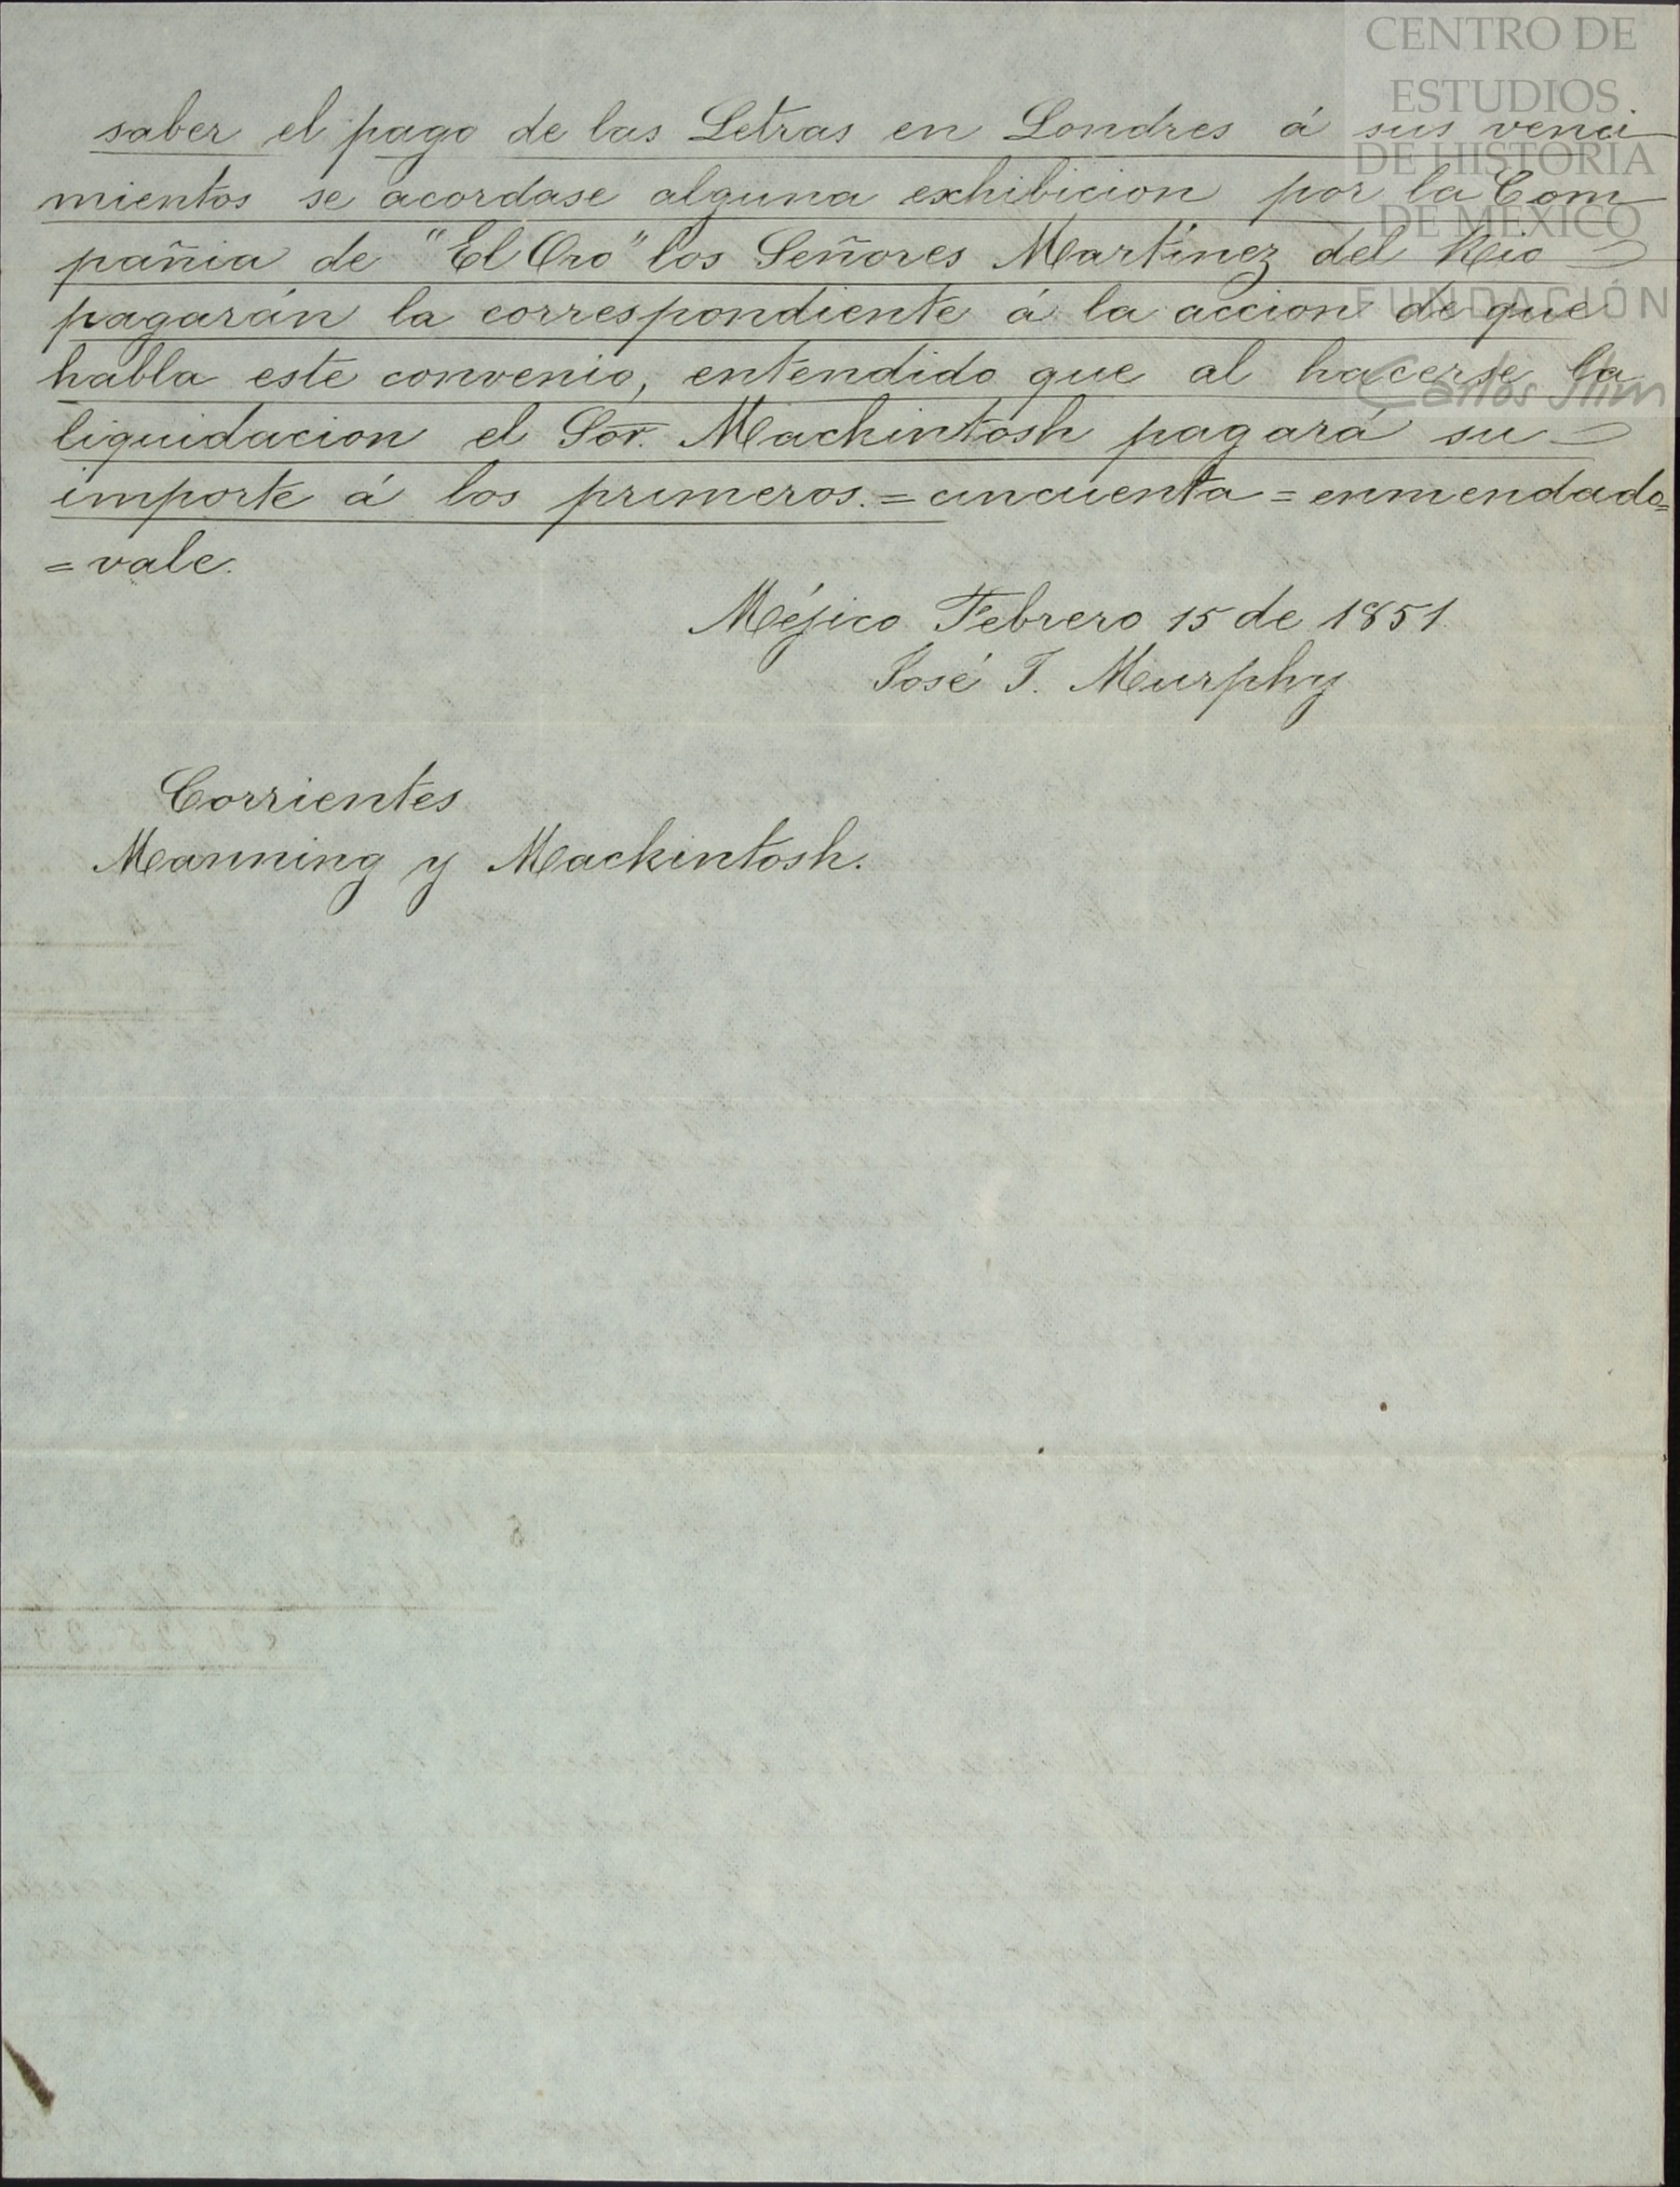 CENTRO DE
ESTUDIOS
DE HISTORIA
DE MÉXICO
FUNDACIÓN
Carlos Slim
saber el pago de las Letras en Londres á sus venci
mientos se acordase alguna exhibicion por la Com
pañia de "El Oro" los Señores Martínez del Rio
pagarán la correspondiente á la accion de que
habla este convenio, entendido que al hacerse la
liquidacion el Sor. Mackintosh pagará su
importe á los primeros. = cincuenta = enmendado =
= vale.
Méjico Febrero 15 de 1851.
José T. Murphy
Corrientes
Manning y Mackintosh.